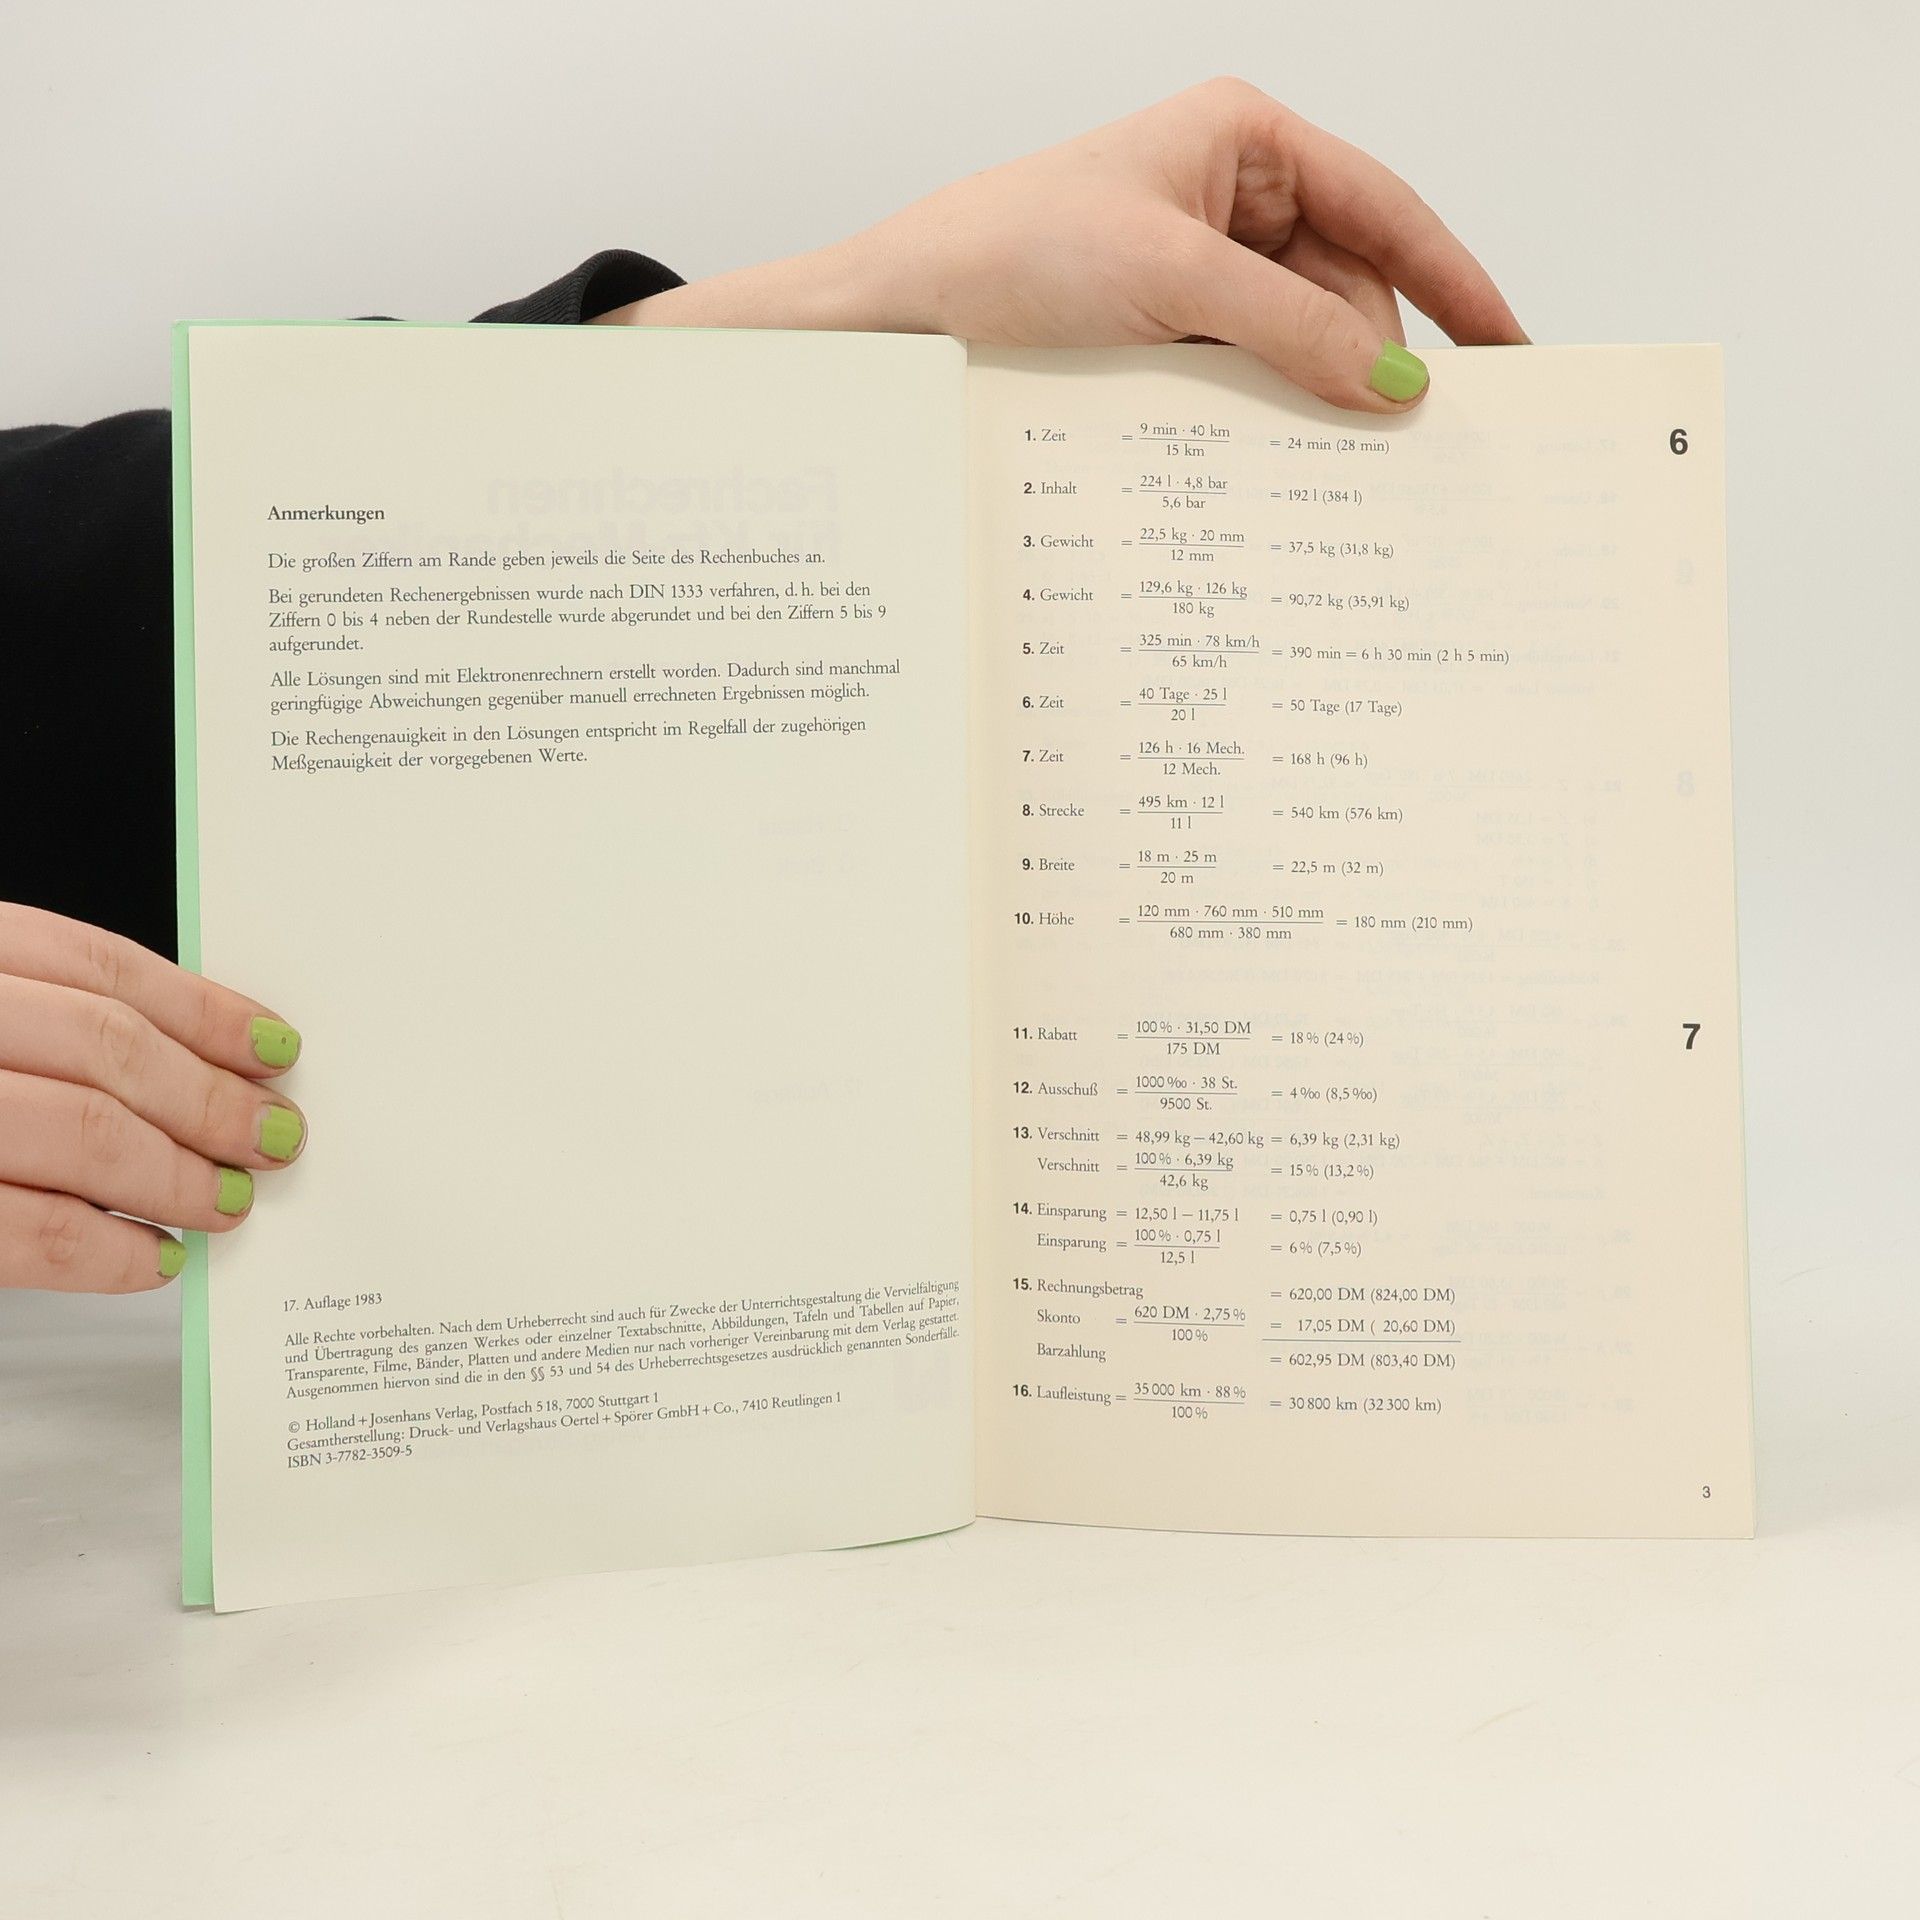 Anmerkungen
Die großen Ziffern am Rande geben jeweils die Seite des Rechenbuches an.
Bei gerundeten Rechenergebnissen wurde nach DIN 1333 verfahren, d. h. bei den
Ziffern 0 bis 4 neben der Rundestelle wurde abgerundet und bei den Ziffern 5 bis 9
aufgerundet.
Alle Lösungen sind mit Elektronenrechnern erstellt worden. Dadurch sind manchmal
geringfügige Abweichungen gegenüber manuell errechneten Ergebnissen möglich.
Die Rechengenauigkeit in den Lösungen entspricht im Regelfall der zugehörigen
Meßgenauigkeit der vorgegebenen Werte.
17. Auflage 1983
Alle Rechte vorbehalten. Nach dem Urheberrecht sind auch für Zwecke der Unterrichtsgestaltung die Vervielfältigung
und Übertragung des ganzen Werkes oder einzelner Textabschnitte, Abbildungen, Tafeln und Tabellen auf Papier,
Transparente, Filme, Bänder, Platten und andere Medien nur nach vorheriger Vereinbarung mit dem Verlag gestattet.
Ausgenommen hiervon sind die in den §§ 53 und 54 des Urheberrechtsgesetzes ausdrücklich genannten Sonderfälle.
© Holland + Josenhans Verlag, Postfach 5 18, 7000 Stuttgart 1
Gesamtherstellung: Druck- und Verlagshaus Oertel + Spörer GmbH + Co., 7410 Reutlingen 1
ISBN 3-7782-3509-5
6
1. Zeit = 9 min · 40 km / 15 km = 24 min (28 min)
2. Inhalt = 224 l · 4,8 bar / 5,6 bar = 192 l (384 l)
3. Gewicht = 22,5 kg · 20 mm / 12 mm = 37,5 kg (31,8 kg)
4. Gewicht = 129,6 kg · 126 kg / 180 kg = 90,72 kg (35,91 kg)
5. Zeit = 325 min · 78 km/h / 65 km/h = 390 min = 6 h 30 min (2 h 5 min)
6. Zeit = 40 Tage · 25 l / 20 l = 50 Tage (17 Tage)
7. Zeit = 126 h · 16 Mech. / 12 Mech. = 168 h (96 h)
8. Strecke = 495 km · 12 l / 11 l = 540 km (576 km)
9. Breite = 18 m · 25 m / 20 m = 22,5 m (32 m)
10. Höhe = 120 mm · 760 mm · 510 mm / 680 mm · 380 mm = 180 mm (210 mm)
7
11. Rabatt = 100 % · 31,50 DM / 175 DM = 18 % (24 %)
12. Ausschuß = 1000 ‰ · 38 St. / 9500 St. = 4 ‰ (8,5 ‰)
13. Verschnitt = 48,99 kg – 42,60 kg = 6,39 kg (2,31 kg)
Verschnitt = 100 % · 6,39 kg / 42,6 kg = 15 % (13,2 %)
14. Einsparung = 12,50 l – 11,75 l = 0,75 l (0,90 l)
Einsparung = 100 % · 0,75 l / 12,5 l = 6 % (7,5 %)
15. Rechnungsbetrag = 620,00 DM (824,00 DM)
Skonto = 620 DM · 2,75 % / 100 % = 17,05 DM ( 20,60 DM)
Barzahlung = 602,95 DM (803,40 DM)
16. Laufleistung = 35 000 km · 88 % / 100 % = 30 800 km (32 300 km)
3